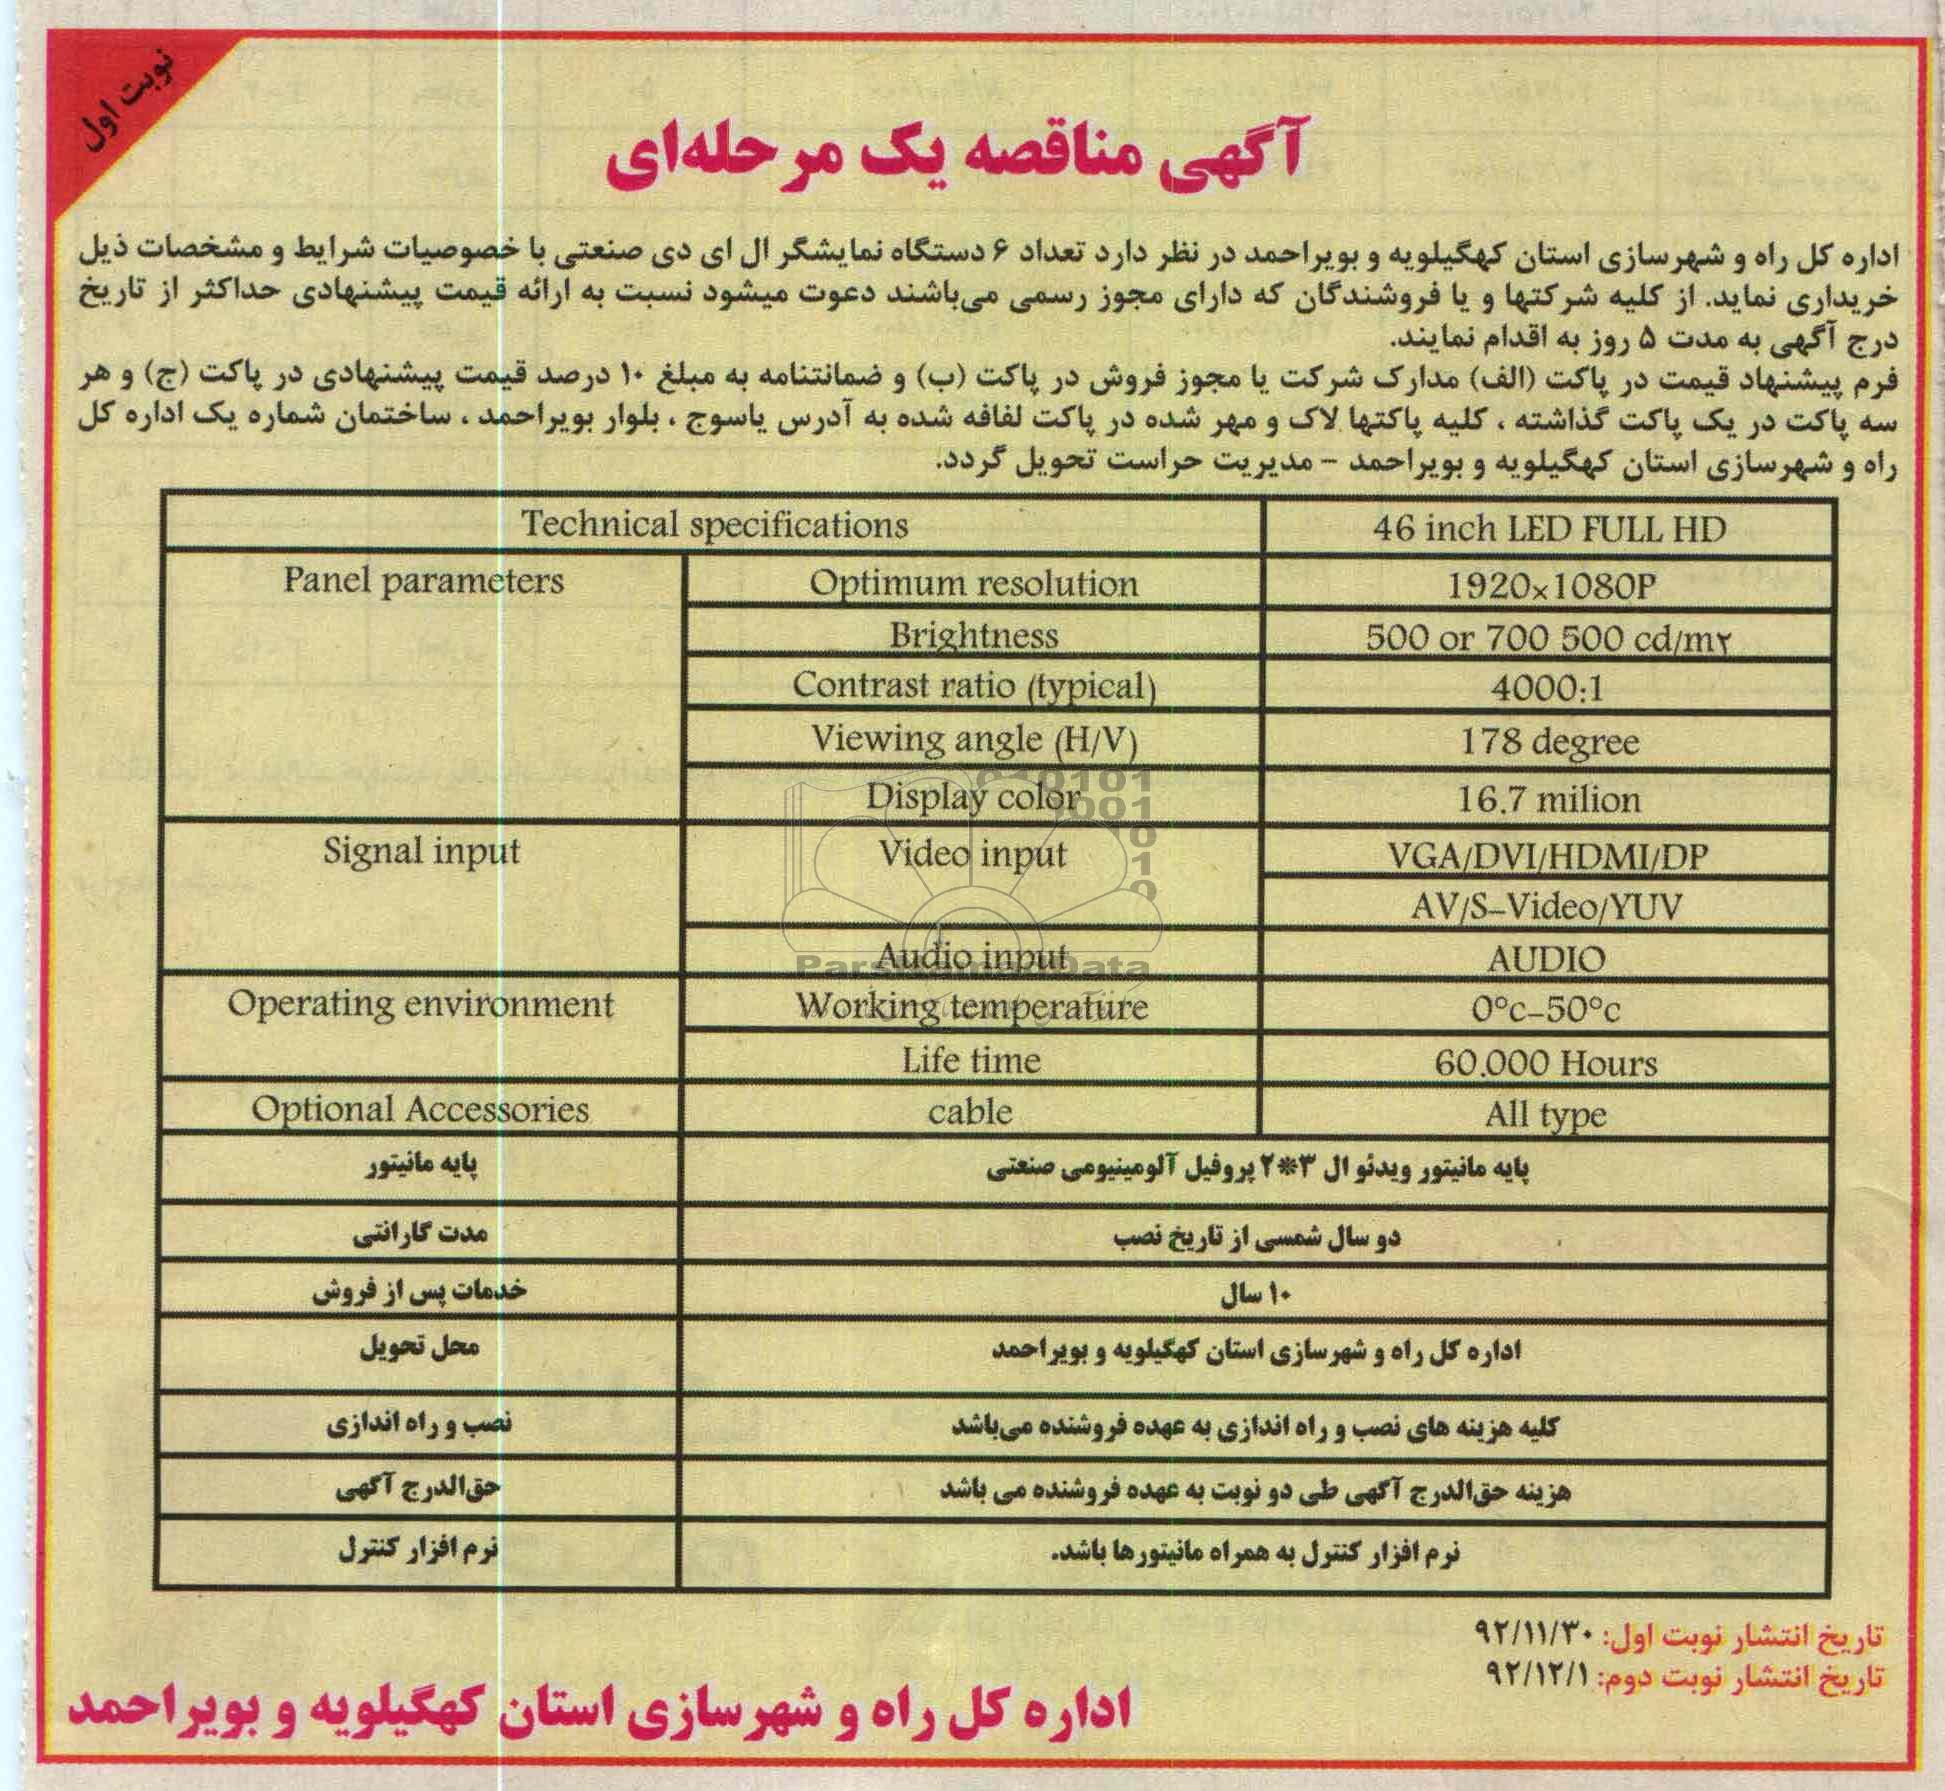 نوبت اول
آگهی مناقصه یک مرحله‌ای
اداره کل راه و شهرسازی استان کهگیلویه و بویراحمد در نظر دارد تعداد ۶ دستگاه نمایشگر ال ای دی صنعتی با خصوصیات شرایط و مشخصات ذیل
خریداری نماید. از کلیه شرکتها و یا فروشندگان که دارای مجوز رسمی می‌باشند دعوت میشود نسبت به ارائه قیمت پیشنهادی حداکثر از تاریخ
درج آگهی به مدت ۵ روز به اقدام نمایند.
فرم پیشنهاد قیمت در پاکت (الف) مدارک شرکت یا مجوز فروش در پاکت (ب) و ضمانتنامه به مبلغ ۱۰ درصد قیمت پیشنهادی در پاکت (ج) و هر
سه پاکت در یک پاکت گذاشته ، کلیه پاکتها لاک و مهر شده در پاکت لفافه شده به آدرس یاسوج ، بلوار بویراحمد ، ساختمان شماره یک اداره کل
راه و شهرسازی استان کهگیلویه و بویراحمد – مدیریت حراست تحویل گردد.
Technical specifications 46 inch LED FULL HD
Panel parameters Optimum resolution 1920×1080P
Brightness 500 or 700 500 cd/m۲
Contrast ratio (typical) 4000:1
Viewing angle (H/V) 178 degree
Display color 16.7 milion
Signal input Video input VGA/DVI/HDMI/DP
AV/S–Video/YUV
Audio input AUDIO
Operating environment Working temperature 0°c–50°c
Life time 60.000 Hours
Optional Accessories cable All type
پایه مانیتور پایه مانیتور ویدئو ال ۳*۲ پروفیل آلومینیومی صنعتی
مدت گارانتی دو سال شمسی از تاریخ نصب
خدمات پس از فروش ۱۰ سال
محل تحویل اداره کل راه و شهرسازی استان کهگیلویه و بویراحمد
نصب و راه اندازی کلیه هزینه های نصب و راه اندازی به عهده فروشنده می‌باشد
حق‌الدرج آگهی هزینه حق‌الدرج آگهی طی دو نوبت به عهده فروشنده می باشد
نرم افزار کنترل نرم افزار کنترل به همراه مانیتورها باشد.
تاریخ انتشار نوبت اول: ۹۲/۱۱/۳۰
تاریخ انتشار نوبت دوم: ۹۲/۱۲/۱
اداره کل راه و شهرسازی استان کهگیلویه و بویراحمد